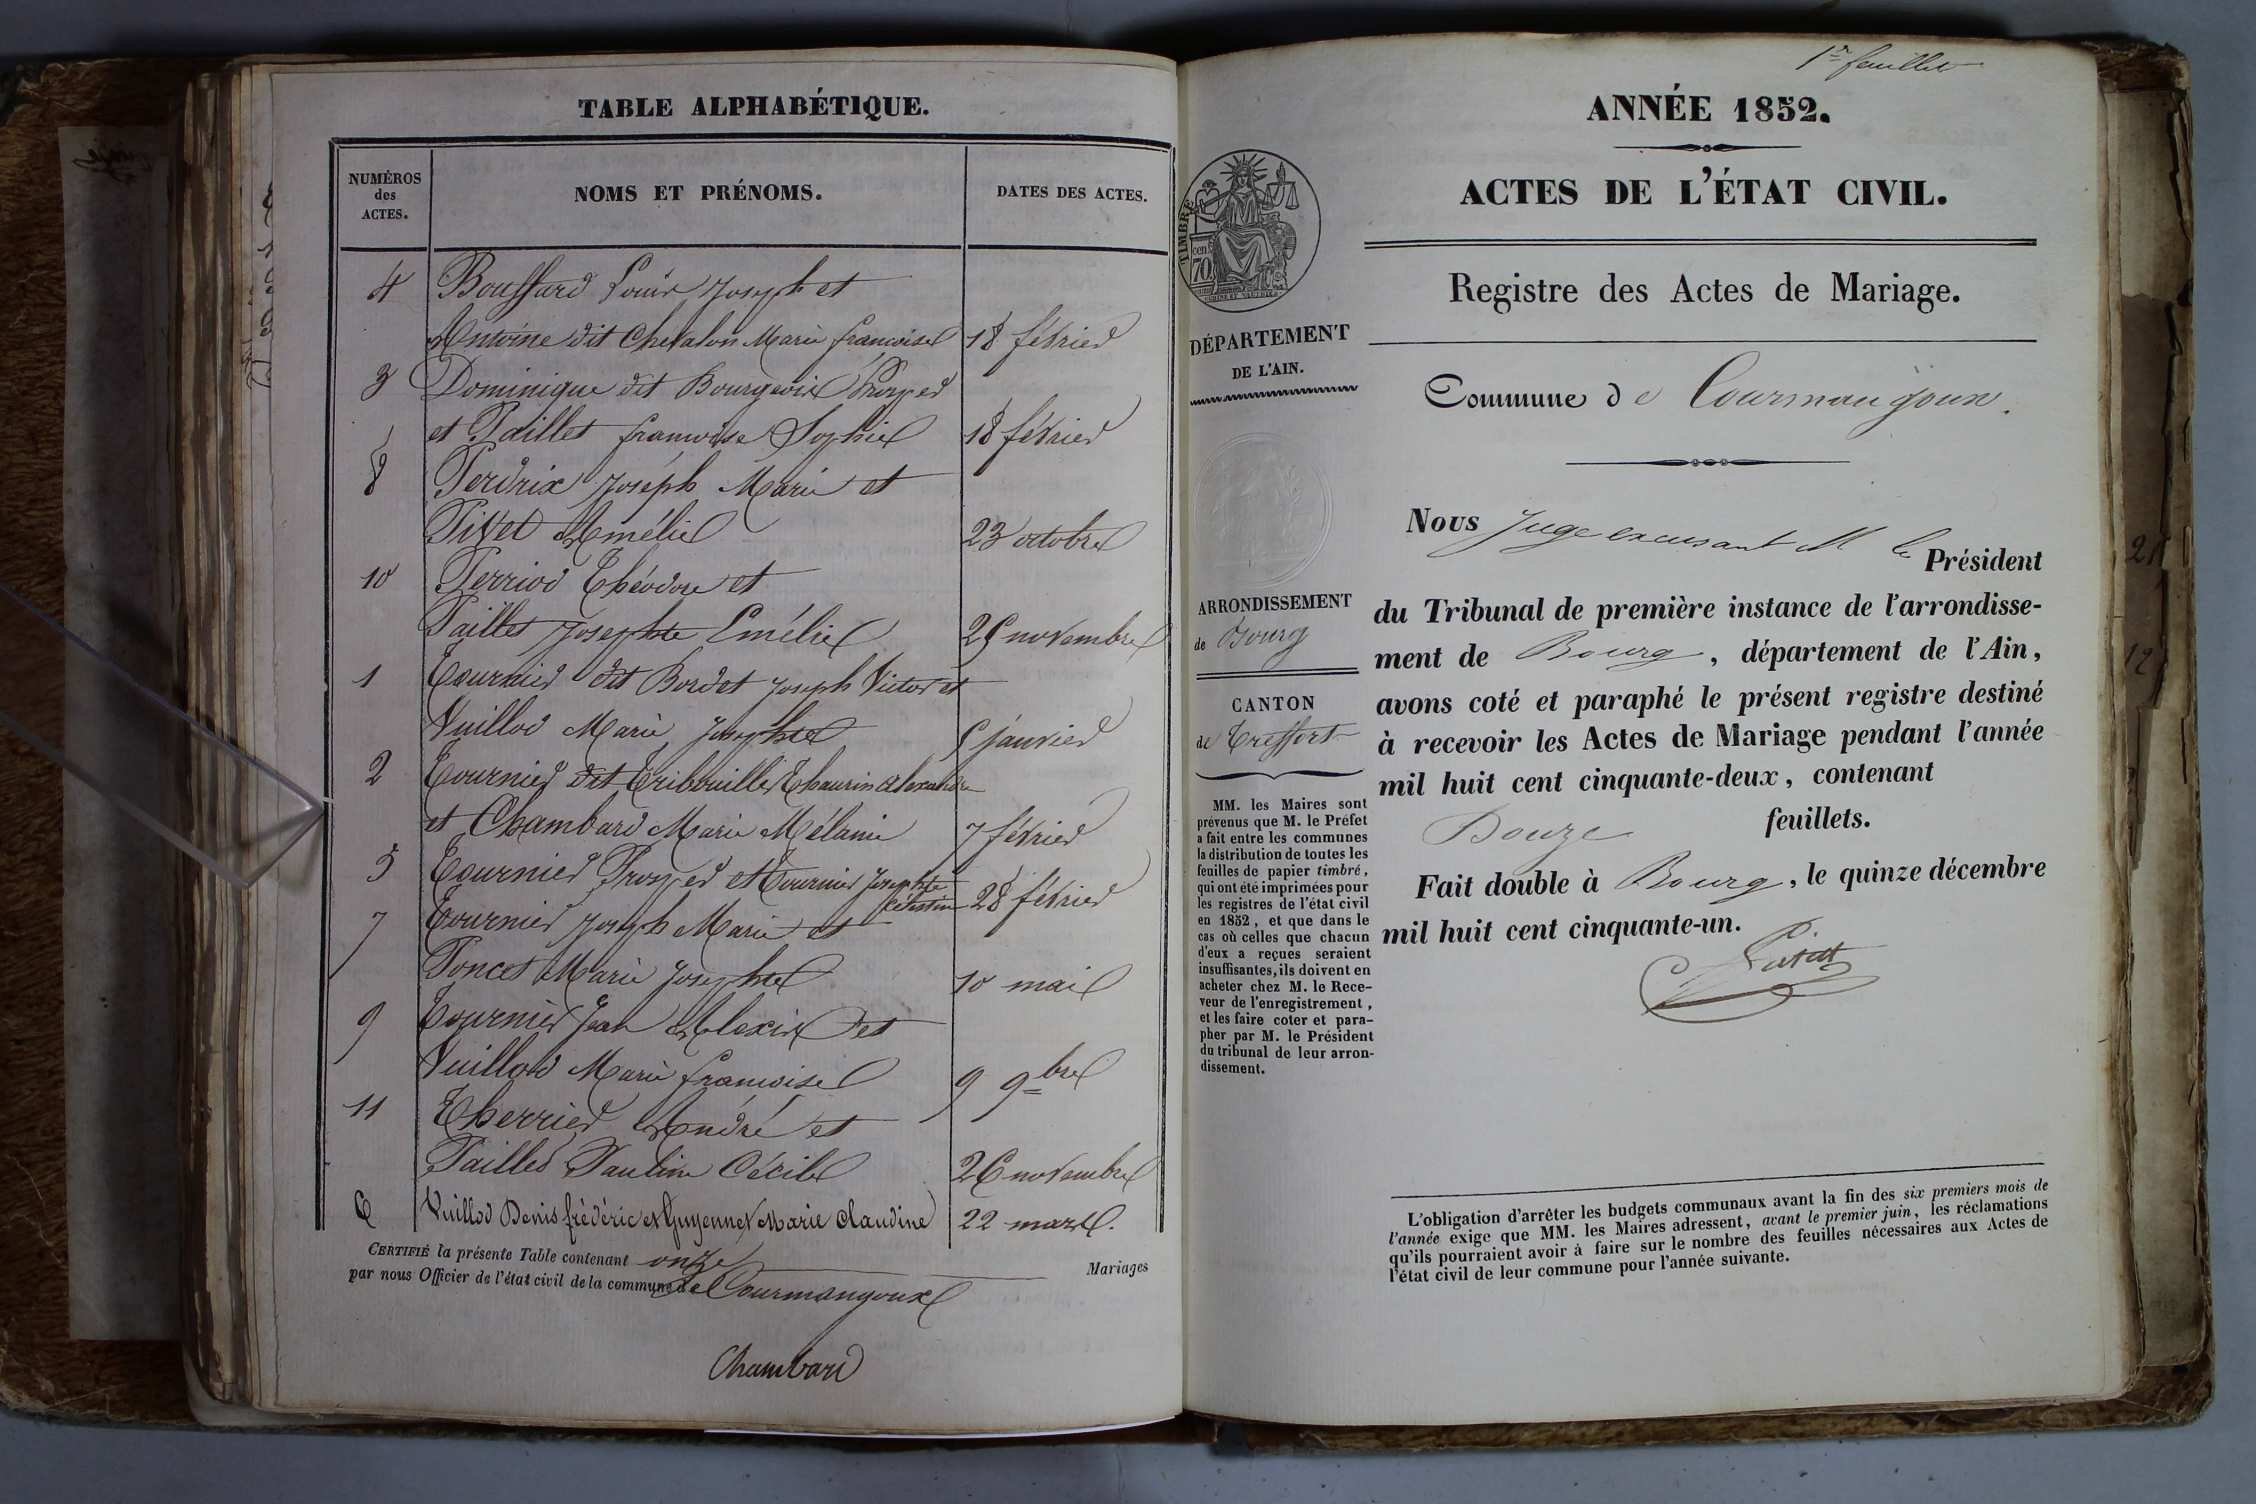 TABLE ALPHABÉTIQUE.
NUMÉROS
des
ACTES.
NOMS ET PRÉNOMS.
DATES DES ACTES.
4 Bouffard Louis Joseph et
Antoine dit Chevalon Marie françoise 18 février
3 Dominique dit Bourgeois Prosper
et Paillet françoise Sophie 18 février
8 Perdrix Joséph Marie et
Pivet Amélie 23 octobre
10 Perriod Théodore et
Paillet Josephte Emélie 25 novembre
1 Tournier dit Bordet Joseph Victor et
Vuillod Marie Josephte 5 janvier
2 Tournier dit Tribouillet Thaurin alexandre
et Chambard Marie Mélanie 7 février
5 Tournier Prosper et Tournier Josephte
Célestine 28 février
7 Tournier Joseph Marie et
Poncet Marie Josephte 10 mai
9 Tournier Jean Alexis et
Vuillod Marie françoise 9 9bre
11 Therrier André et
Paillet Pauline Cécile 26 novembre
6 Vuillod Denis frédéric et Guyennet Marie Claudine 22 mars.
CERTIFIÉ la présente Table contenant onze Mariages
par nous Officier de l'état civil de la commune de Courmangoux
Chambard
1er feuillet
ANNÉE 1852.
ACTES DE L'ÉTAT CIVIL.
Registre des Actes de Mariage.
TIMBRE
cen
70
DÉPARTEMENT
DE L'AIN.
Commune de Courmangoux.
ARRONDISSEMENT
de Bourg
CANTON
de Treffort
MM. les Maires sont
prévenus que M. le Préfet
a fait entre les communes
la distribution de toutes les
feuilles de papier timbré,
qui ont été imprimées pour
les registres de l'état civil
en 1852, et que dans le
cas où celles que chacun
d'eux a reçues seraient
insuffisantes, ils doivent en
acheter chez M. le Rece-
veur de l'enregistrement,
et les faire coter et para-
pher par M. le Président
du tribunal de leur arron-
dissement.
Nous Juge excusant M le Président
du Tribunal de première instance de l'arrondisse-
ment de Bourg, département de l'Ain,
avons coté et paraphé le présent registre destiné
à recevoir les Actes de Mariage pendant l'année
mil huit cent cinquante-deux, contenant
Douze feuillets.
Fait double à Bourg, le quinze décembre
mil huit cent cinquante-un.
L'obligation d'arrêter les budgets communaux avant la fin des six premiers mois de
l'année exige que MM. les Maires adressent, avant le premier juin, les réclamations
qu'ils pourraient avoir à faire sur le nombre des feuilles nécessaires aux Actes de
l'état civil de leur commune pour l'année suivante.